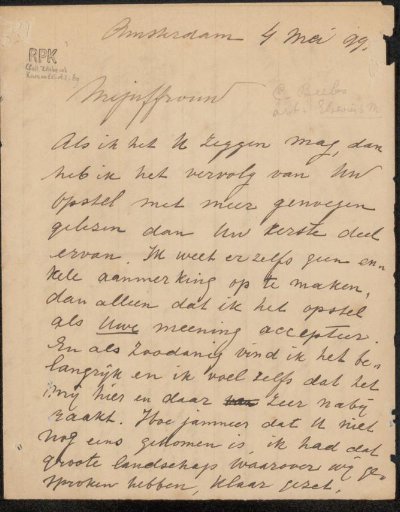 Amsterdam 4 Mei 99.
RPK
Mejuffrouw
Als ik het U zeggen mag, dan
heb ik het vervolg van Uw
opstel met meer genoegen
gelezen dan Uw eerste deel
ervan. Ik weet er zelfs geen en-
kele aanmerking op te maken,
dan alleen dat ik het opstel
als Uwe meening accepteer.
En als zoodanig vind ik het be-
langrijk en ik voel zelfs dat het
mij hier en daar zeer nabij
raakt. Hoe jammer dat U niet
nog eens gekomen is, ik had dat
groote landschap waarover wij ge-
sproken hebben, klaar gezet,